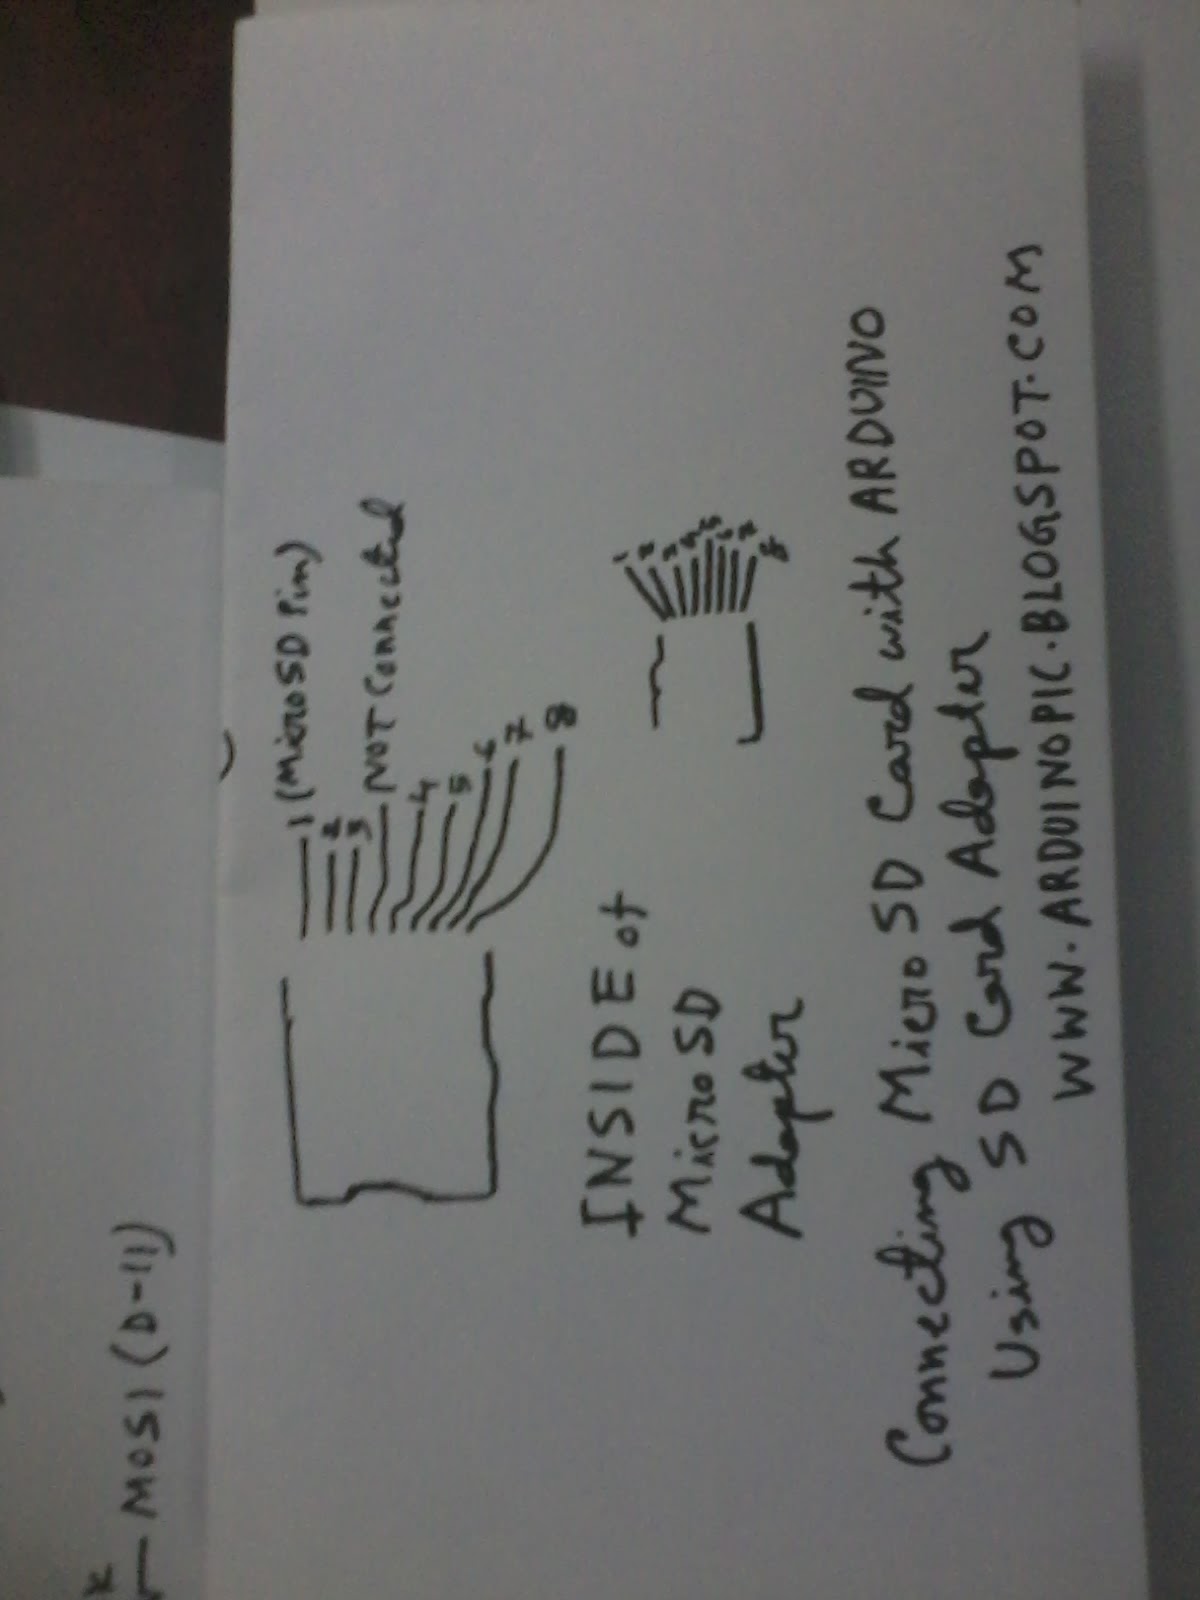 K
MOSI (D-11)
1 (MicroSD Pin)
2
3
NOT Connected
4
5
6
7
8
INSIDE of
Micro SD
Adapter
1
2
3
4
5
6
7
8
Connecting Micro SD Card with ARDUINO
Using SD Card Adapter
WWW.ARDUINOPIC.BLOGSPOT.COM